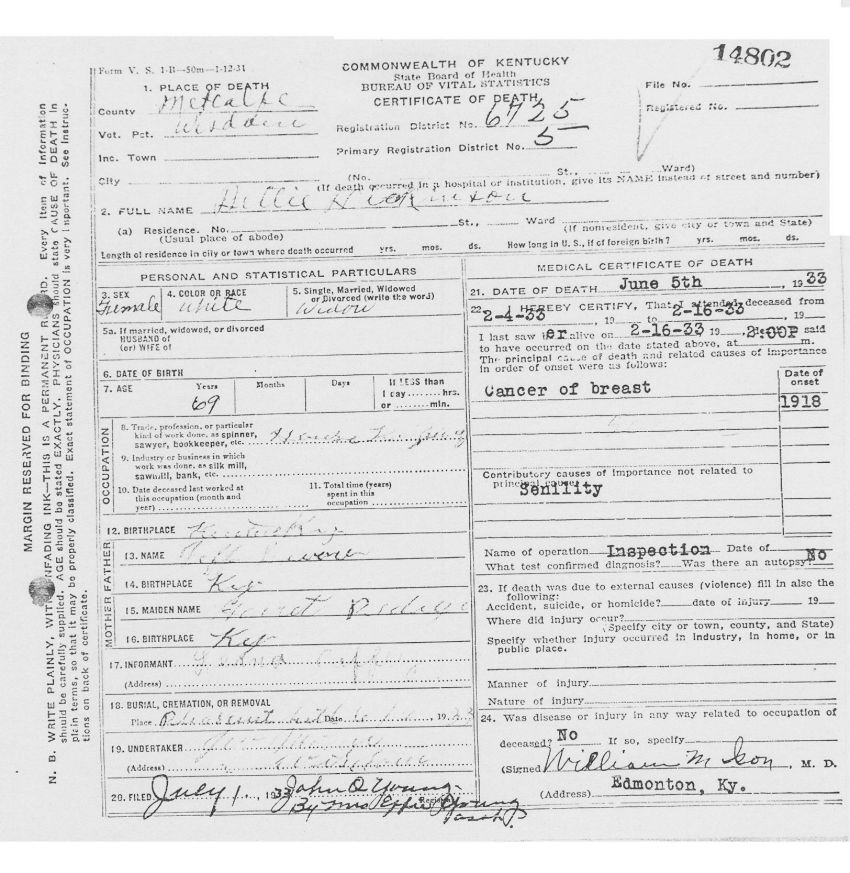 14802
Form V. S. 1-B—50m—1-12-31
COMMONWEALTH OF KENTUCKY
State Board of Health
BUREAU OF VITAL STATISTICS
CERTIFICATE OF DEATH
File No.
Registered No.
1. PLACE OF DEATH
County Metcalfe
Vot. Pct. Wisdom
Inc. Town
City
Registration District No. 6725
Primary Registration District No. 5
(No. St., Ward)
(If death occurred in a hospital or institution, give its NAME instead of street and number)
2. FULL NAME
(a) Residence. No. St., Ward
(Usual place of abode) (If nonresident, give city or town and State)
Length of residence in city or town where death occurred yrs. mos. ds. How long in U. S., if of foreign birth? yrs. mos. ds.
MARGIN RESERVED FOR BINDING
N. B. WRITE PLAINLY, WITH UNFADING INK—THIS IS A PERMANENT RECORD. Every item of information
should be carefully supplied. AGE should be stated EXACTLY. PHYSICIANS should state CAUSE OF DEATH in
plain terms, so that it may be properly classified. Exact statement of OCCUPATION is very important. See instruc-
tions on back of certificate.
PERSONAL AND STATISTICAL PARTICULARS
3. SEX
Female
4. COLOR OR RACE
White
5. Single, Married, Widowed
or Divorced (write the word)
Widow
5a. If married, widowed, or divorced
HUSBAND of
(or) WIFE of
6. DATE OF BIRTH
7. AGE Years Months Days If LESS than
1 day hrs.
or min.
69
OCCUPATION
8. Trade, profession, or particular
kind of work done, as spinner,
sawyer, bookkeeper, etc.
9. Industry or business in which
work was done, as silk mill,
sawmill, bank, etc.
10. Date deceased last worked at
this occupation (month and
year)
11. Total time (years)
spent in this
occupation
12. BIRTHPLACE Kentucky
FATHER
13. NAME
14. BIRTHPLACE Ky
MOTHER
15. MAIDEN NAME
16. BIRTHPLACE Ky
17. INFORMANT
(Address)
18. BURIAL, CREMATION, OR REMOVAL
Place Date , 19
19. UNDERTAKER
(Address)
20. FILED July 1, 1933 John Q Young
Registrar
By Mrs Effie Young
MEDICAL CERTIFICATE OF DEATH
21. DATE OF DEATH June 5th , 1933
22. I HEREBY CERTIFY, That I attended deceased from
2-4-33 , 19 to 2-16-33 , 19
I last saw her alive on 2-16-33 19 said
to have occurred on the date stated above, at 2:00P m.
The principal cause of death and related causes of importance
in order of onset were as follows:
Date of
onset
Cancer of breast
1918
Contributory causes of importance not related to
principal cause:
Senility
Name of operation Inspection Date of
What test confirmed diagnosis? Was there an autopsy? No
23. If death was due to external causes (violence) fill in also the
following:
Accident, suicide, or homicide? date of injury 19
Where did injury occur?
(Specify city or town, county, and State)
Specify whether injury occurred in industry, in home, or in
public place.
Manner of injury
Nature of injury
24. Was disease or injury in any way related to occupation of
deceased? No If so, specify
(Signed) William M , M. D.
(Address) Edmonton, Ky.